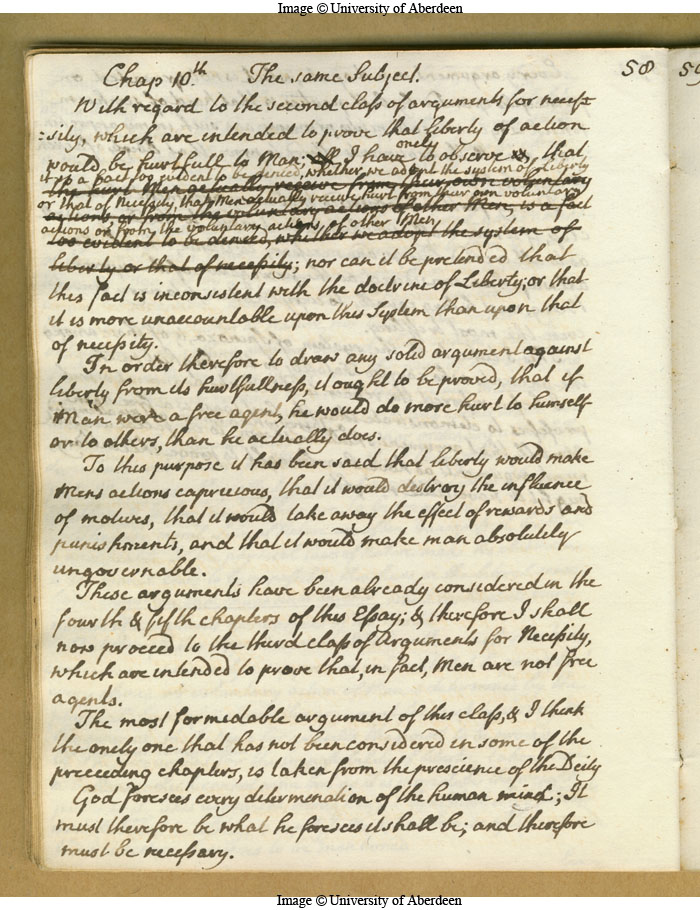 Image © University of Aberdeen
58
59
Chap 10.th The same Subject.
With regard to the second class of arguments for necess
=sity, which are intended to prove that liberty of action
would be hurtfull to Man; I have onely to observe, that
it is a fact too evident to be denied, whether we adopt the system of Liberty
the hurt Men actually receive from their own voluntary
or that of Necessity, that Men actually receive hurt from their own voluntary
actions or from the voluntary actions of other Men, is a fact
actions or from the voluntary actions of other Men,
too evident to be denied, whether we adopt the system of
liberty or that of necessity; nor can it be pretended that
this fact is inconsistent with the doctrine of Liberty; or that
it is more unaccountable upon this System than upon that
of necessity.
In order therefore to draw any solid argument against
liberty from its hurtfullness, it ought to be proved, that if
Man were a free agent, he would do more hurt to himself
or to others, than he actually does.
To this purpose it has been said that liberty would make
Mens actions capricious, that it would destroy the influence
of motives, that it would take away the effect of rewards and
punishments, and that it would make man absolutely
ungovernable.
These arguments have been already considered in the
fourth & fifth chapters of this Essay; & therefore I shall
now proceed to the third class of Arguments for Necessity,
which are intended to prove that, in fact, Men are not free
agents.
The most formidable argument of this class, & I think
the onely one that has not been considered in some of the
preceeding chapters, is taken from the prescience of the Deity
God foresees every determenation of the human mind; It
must therefore be what he foresees it shall be; and therefore
must be necessary.
Image © University of Aberdeen